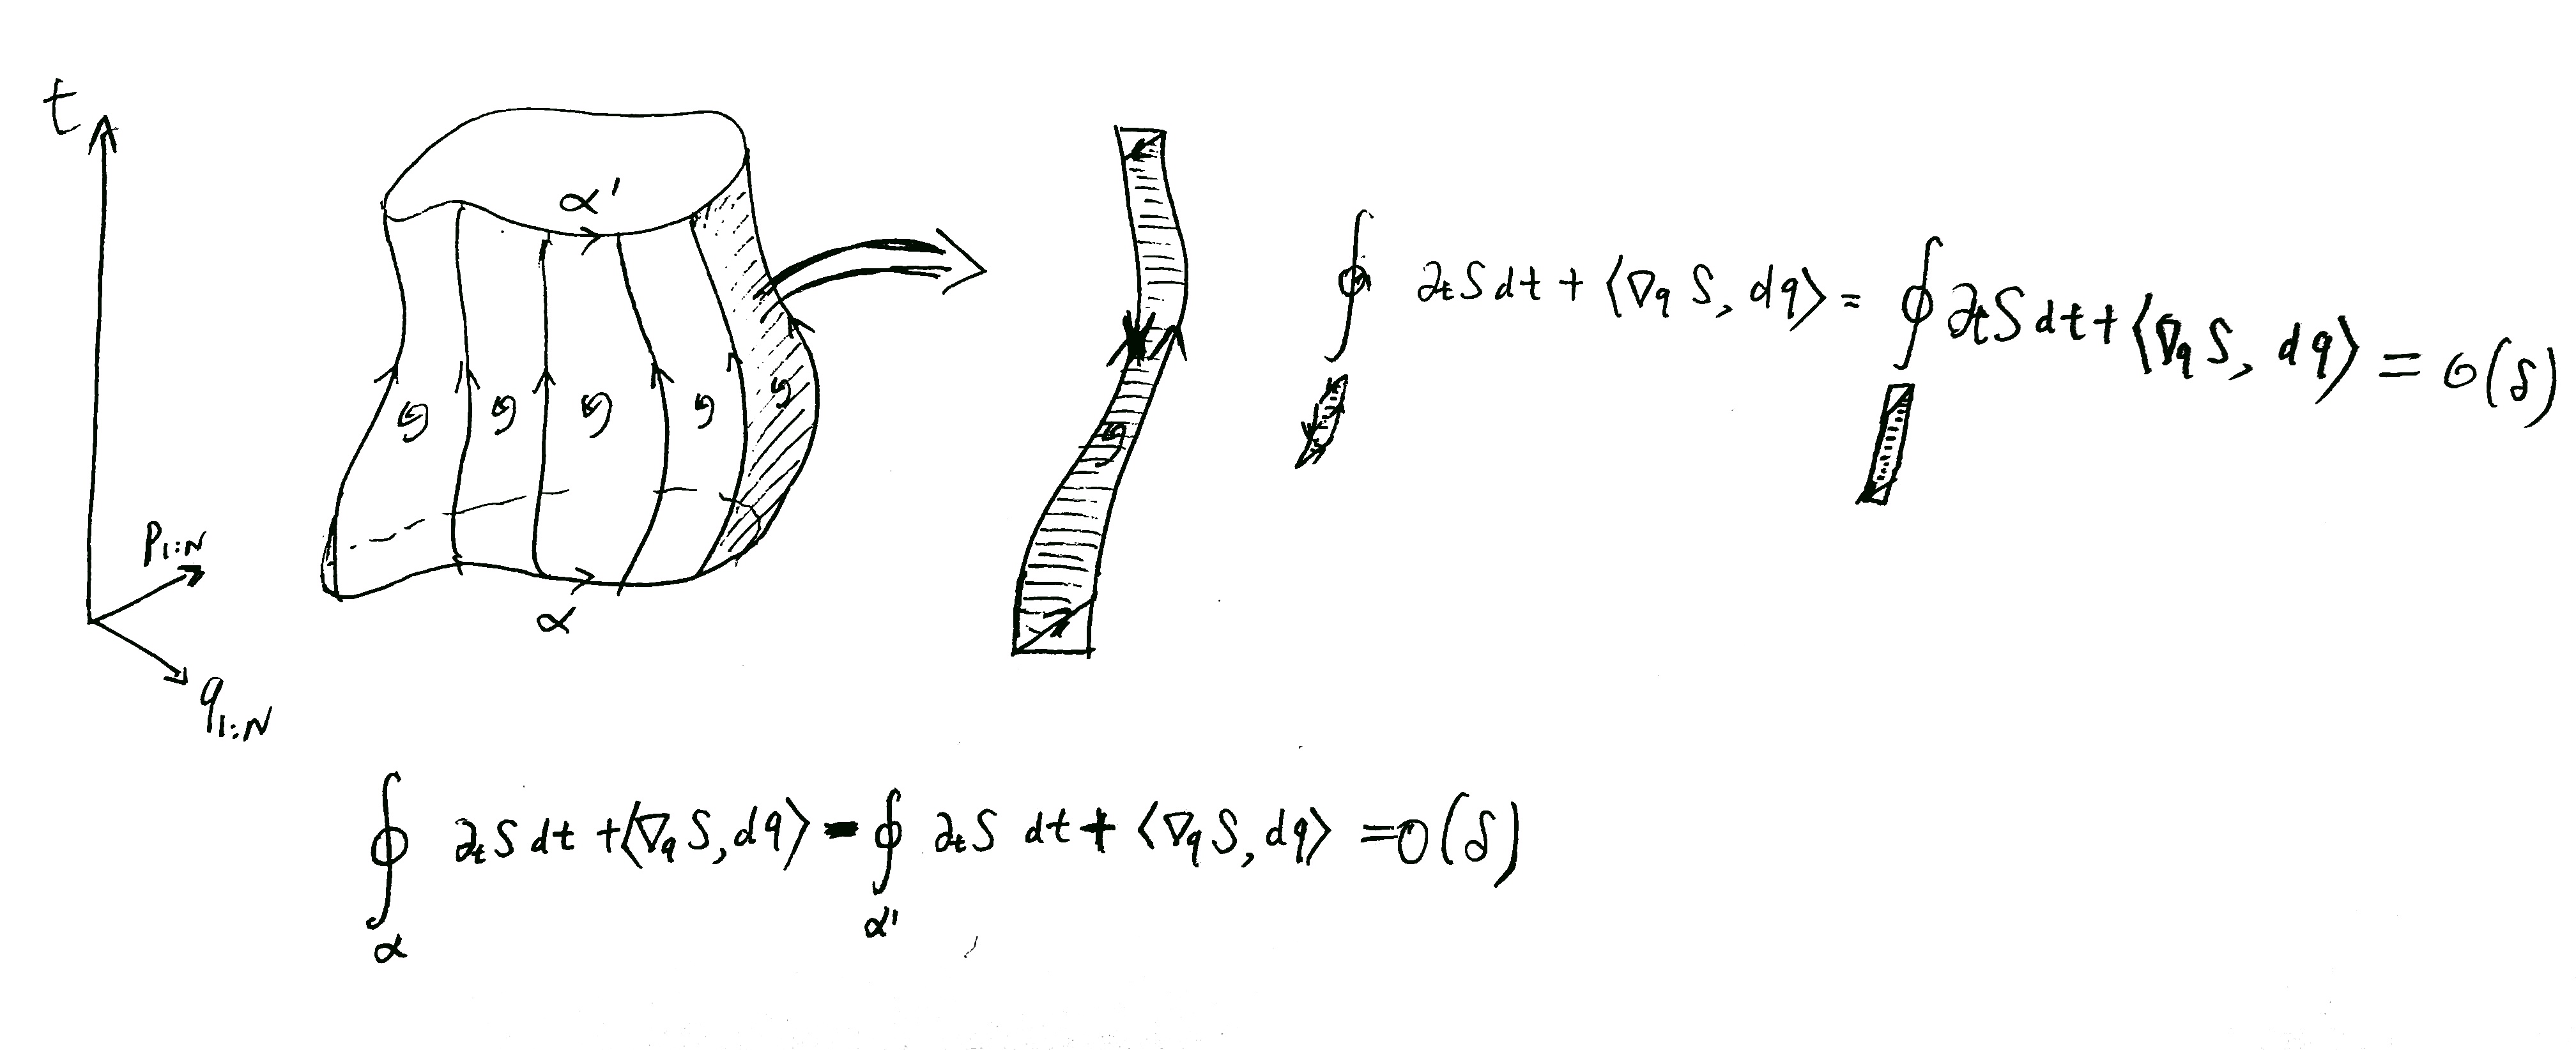 t
α'
p₁:N
q₁:N
α
∮ ∂ₜS dt + ⟨∇q S, dq⟩ = ∮ ∂ₜS dt + ⟨∇q S, dq⟩ = O(δ)
∮ ∂ₜS dt + ⟨∇q S, dq⟩ - ∮ ∂ₜS dt + ⟨∇q S, dq⟩ = O(δ)
α α'